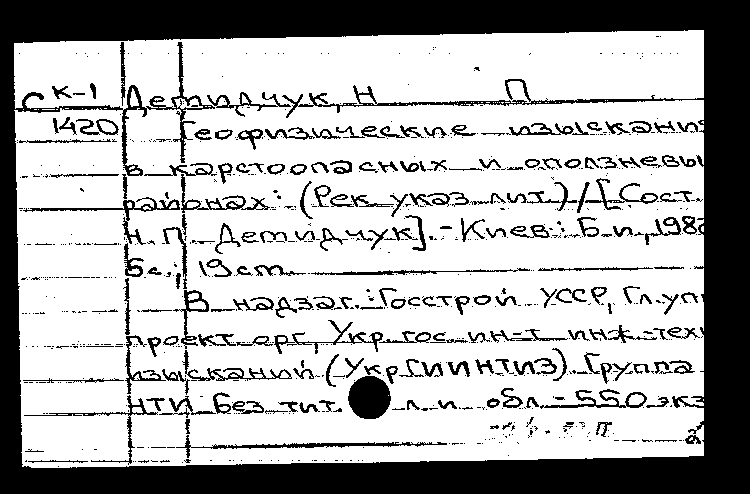 С К-1 Демидчук, Н П
1420 Геофизические изыскания
в карстоопасных и оползневы
районах: (Рек. указ. лит.)/[Сост.
Н.П. Демидчук].-Киев: Б.и., 198
6с.; 19cm.
В надзаг.: Госстрой УССР, Гл. упр
проект. орг., Укр. гос. ин-т инж.-техн
изысканий (УкрГИИНТИЗ). Группа
НТИ. Без тит. л. и обл. - 550 экз